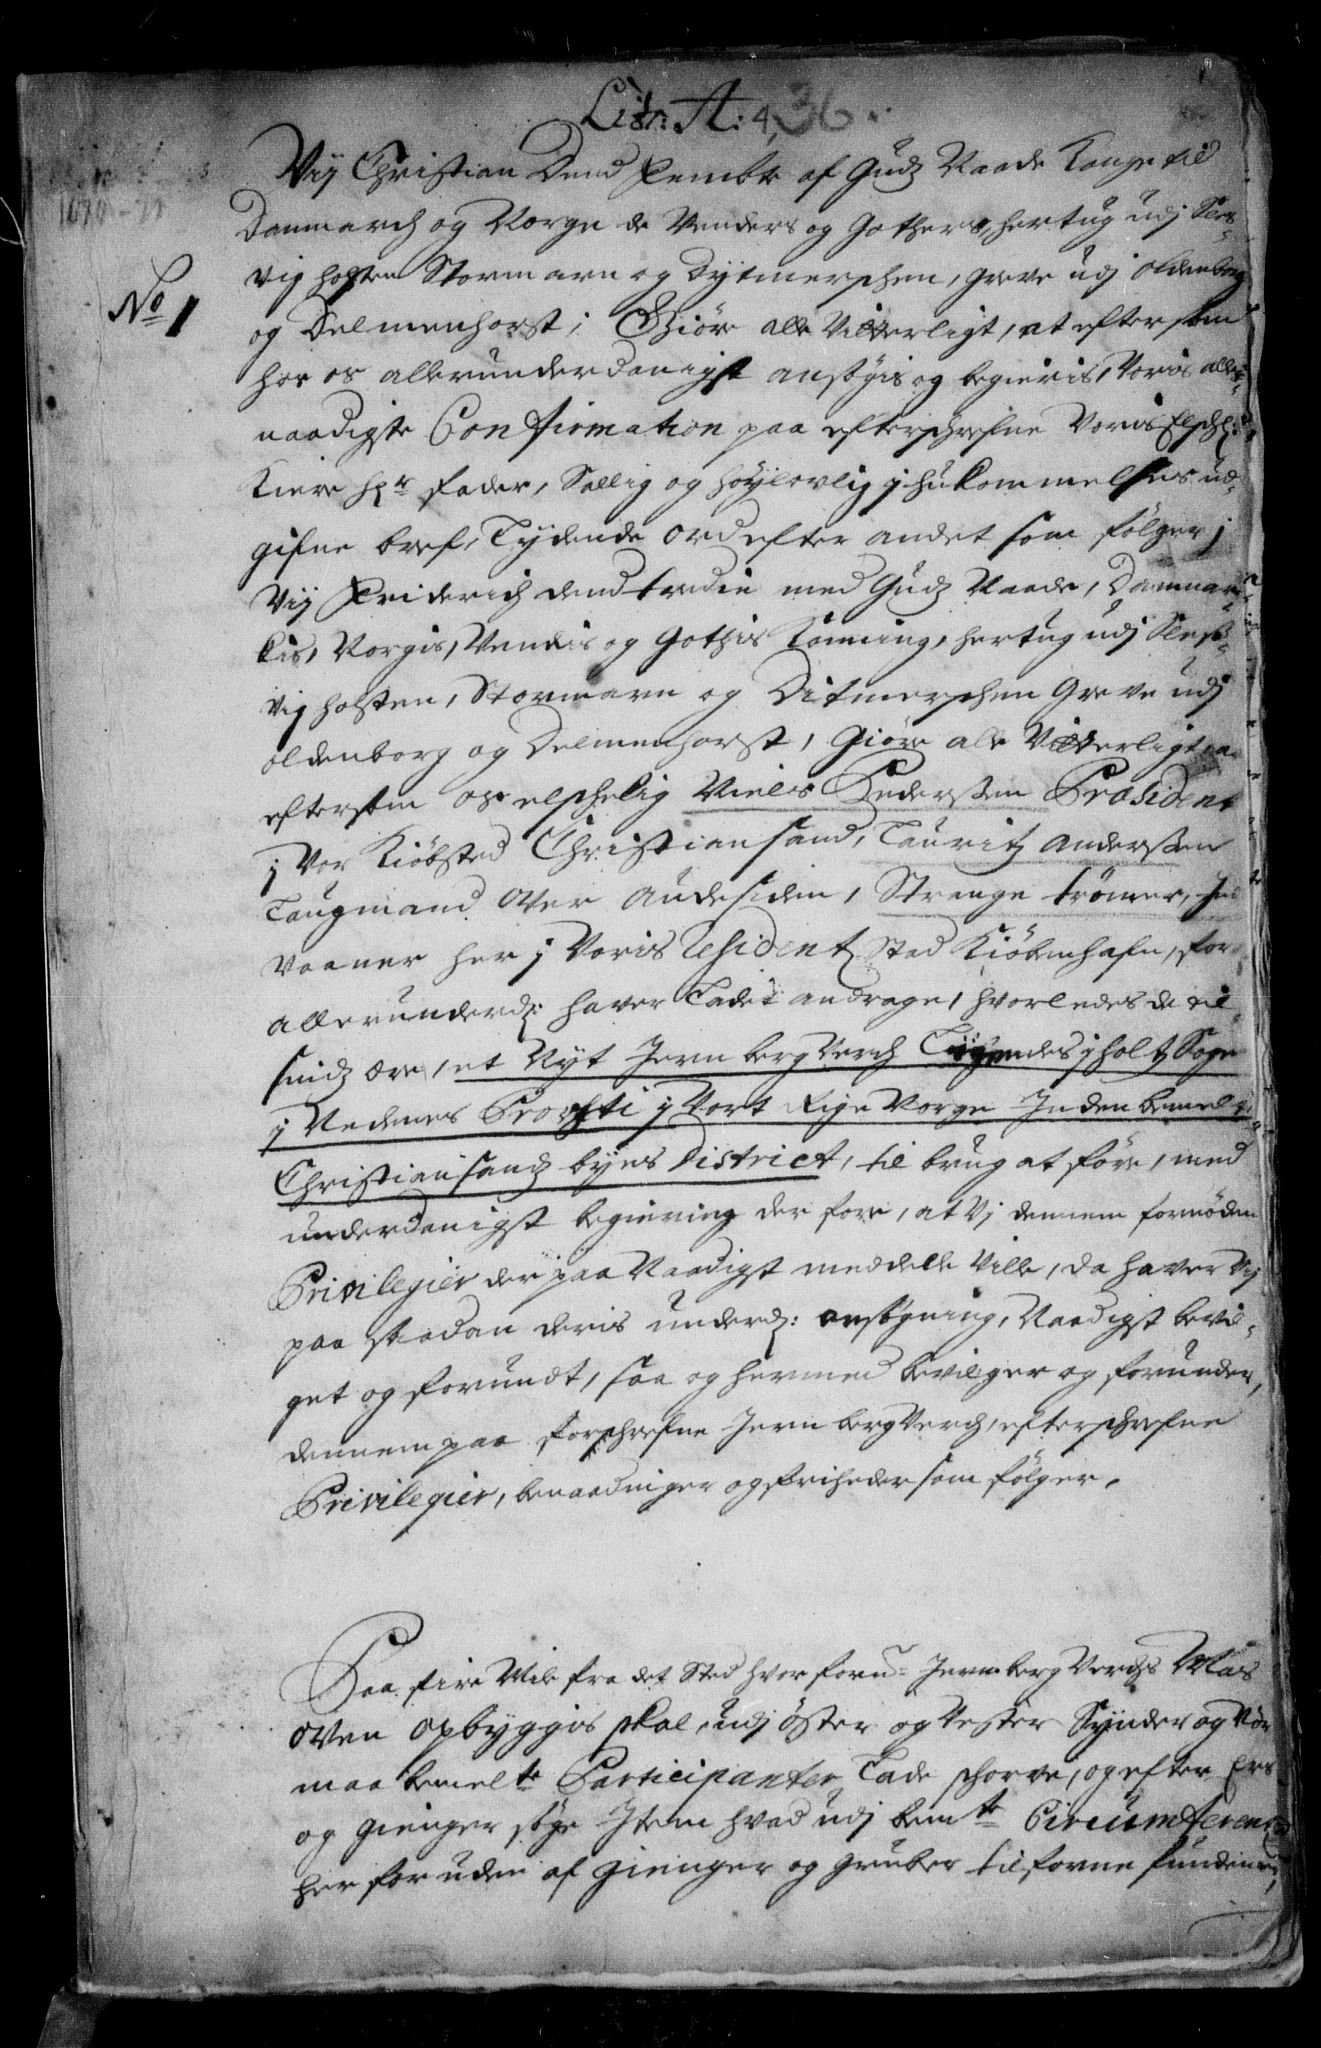 Litr: A: 4, 36.
1670-71
No 1
Vij Christian Dend Femte af Gudz Naade Konge til
Danmarch og Norge de Venders og Gothers, hertug udj Sles-
vig holsten Stormarn og Dytmerschen, Greve udj Oldenborg
og Delmenhorst; Giöre alle Vitterligt, at eftersom
hos os allerunderdanigst ansøgis og begieris, Voris aller-
naadigste Confirmation paa efterschrefne Voris Elschl:
Kiere Hr Fader, Sallig og høylovlig jhukommelses ud-
gifne bref, Lydende ord efter andet som følger;
Vij Friderich dend tredie med Gudz Naade, Danmar-
kis, Norgis, Vendis og Gothis Konning, hertug udj Sleß-
vig holsten, Stormarn og Ditmerschen Greve udj
oldenborg og Delmenhorst, Giöre alle Vitterligt
eftersom os elschelig Niels Pederssen Præsident
j Vor Kiöbsted Christiansand, Lauritz Anderssen
Laugmand over Audesiden, Strange Trömer, Ind
vaaner her j Voris Residentz Stad Kiöbenhafn, for
allerunderd: haver Ladet andrage, hvorledes de til-
sindz ere, et Nyt Jern bergVerch Liggendes j holtz Sogn
j Nedenes Prousti j Vort Rige Norge Inden bemelte
Christiansandz byes District, til brug at före, med
underdanigst begiering der fore, at Vj dennem fornöden
Privilegier der paa Naadigst meddelle Ville, da haver Vij
paa saadan deris underd: ansøgning, Naadigst bevil-
get og forundt, saa og hermed bevilger og forunder,
dennem paa forschrefne Jern bergVerch, efterschrefne
Privilegier, benaadninger og friheder som følger.
Paa fire Mile fra det Sted hvor forn- Jernberg Verchs Mas
oven opbyggis skal, udj öster og Vester Synder og Nör
maa bemelte Participanter Lade schorve, og efter Ertz
og gienger søge Item hvad udj bemte Circumferentz
her for uden af gienger og gruber tilforne funden er,